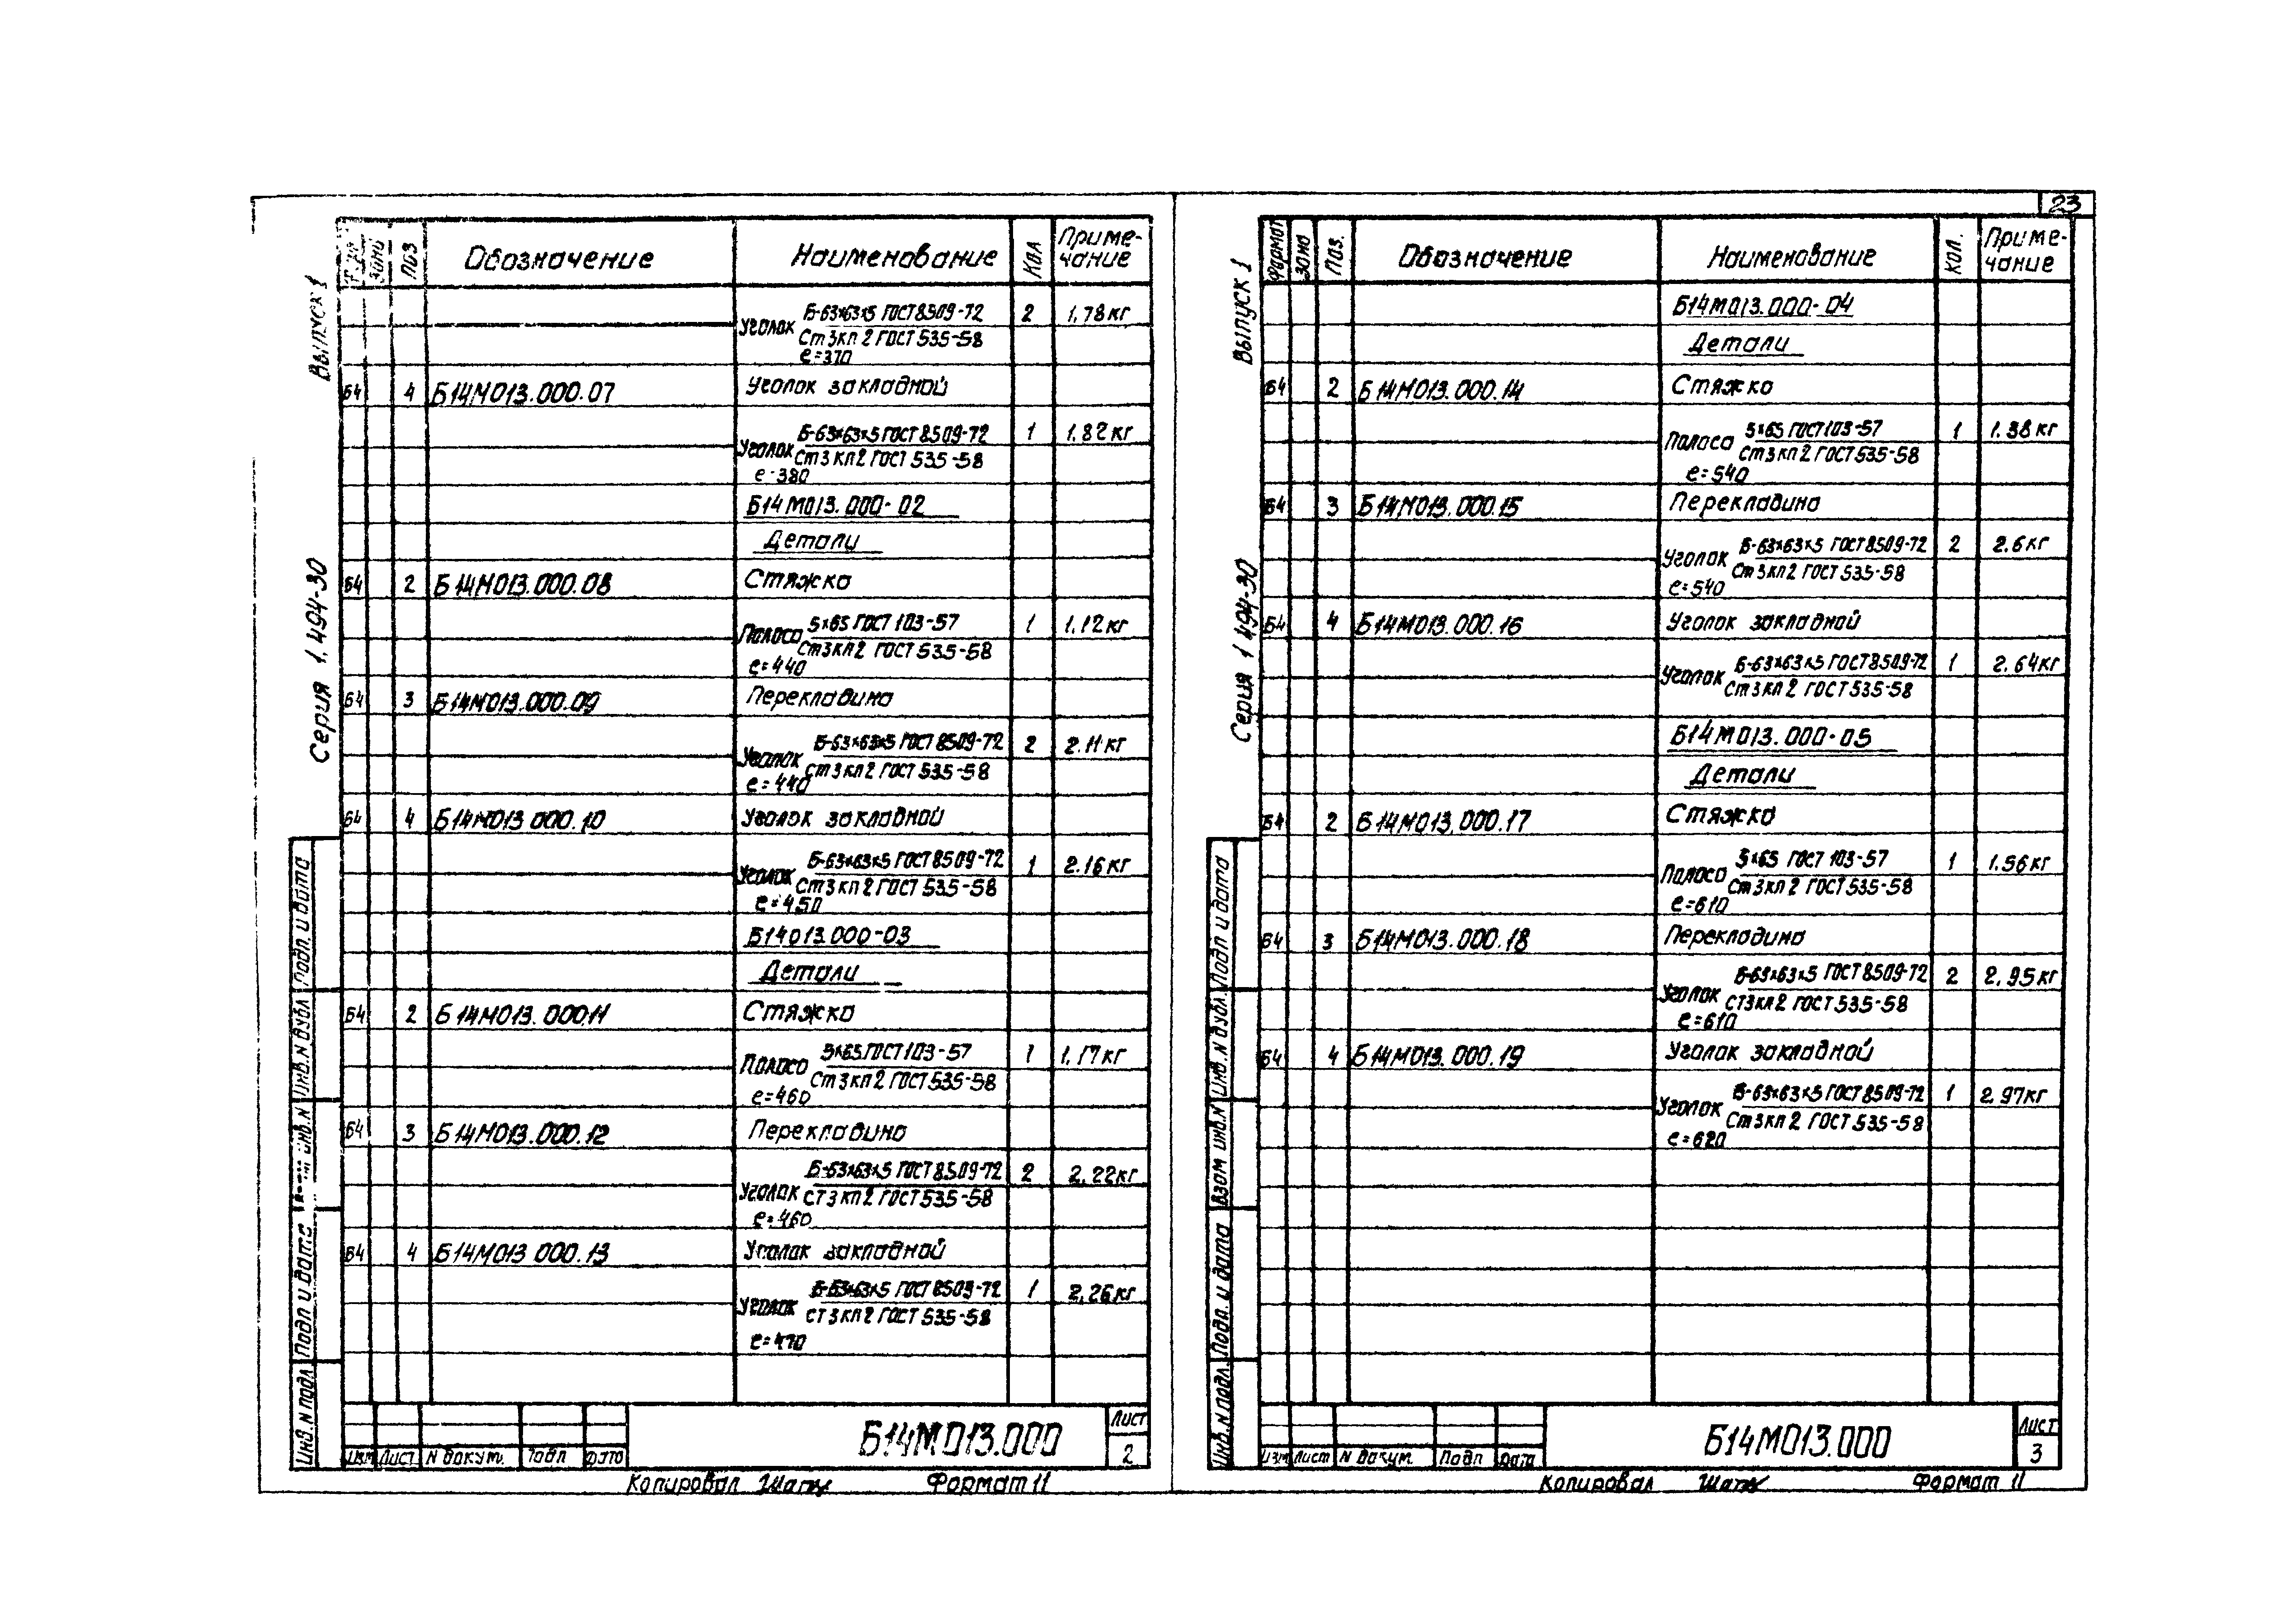 23
Выпуск 1
Серия 1.494-30
Зона Поз Обозначение Наименование Кол Приме-
чание
Уголок Б-63×63×5 ГОСТ 8509-72 2 1.78кг
Ст3кп2 ГОСТ 535-58
е=370
Б4 4 Б14М013.000.07 Уголок закладной
Уголок Б-63×63×5 ГОСТ 8509-72 1 1.82кг
Ст3кп2 ГОСТ 535-58
е=380
Б14М013.000-02
Детали
Б4 2 Б14М013.000.08 Стяжка
Полоса 5×65 ГОСТ 103-57 1 1.12кг
Ст3кп2 ГОСТ 535-58
е=440
Б4 3 Б14М013.000.09 Перекладина
Уголок Б-63×63×5 ГОСТ 8509-72 2 2.11кг
Ст3кп2 ГОСТ 535-58
е=440
Б4 4 Б14М013 000.10 Уголок закладной
Уголок Б-63×63×5 ГОСТ 8509-72 1 2.16кг
Ст3кп2 ГОСТ 535-58
е=450
Б14013.000-03
Детали
Б4 2 Б14М013.000.11 Стяжка
Полоса 5×65 ГОСТ 103-57 1 1.17кг
Ст3кп2 ГОСТ 535-58
е=460
Б4 3 Б14М013.000.12 Перекладина
Уголок Б-63×63×5 ГОСТ 8509-72 2 2.22кг
Ст3кп2 ГОСТ 535-58
е=460
Б4 4 Б14М013 000.13 Уголок закладной
Уголок Б-63×63×5 ГОСТ 8509-72 1 2.26кг
Ст3кп2 ГОСТ 535-58
е=470
Подп. и дата
Инв.N дубл.
инв.N
Подп и дата
Инв.N подл
Изм Лист N докум. Подп Дата
Б14М013.000
Лист
2
Копировал Формат 11
Выпуск 1
Серия 1 494-30
Формат Зона Поз. Обозначение Наименование Кол. Приме-
чание
Б14М013.000-04
Детали
Б4 2 Б14М013.000.14 Стяжка
Полоса 5×65 ГОСТ 103-57 1 1.38кг
Ст3кп2 ГОСТ 535-58
е=540
Б4 3 Б14М013.000.15 Перекладина
Уголок Б-63×63×5 ГОСТ 8509-72 2 2.6кг
Ст3кп2 ГОСТ 535-58
е=540
Б4 4 Б14М013.000.16 Уголок закладной
Уголок Б-63×63×5 ГОСТ 8509-72 1 2.64кг
Ст3кп2 ГОСТ 535-58
Б14М013.000-05
Детали
Б4 2 Б14М013.000.17 Стяжка
Полоса 5×65 ГОСТ 103-57 1 1.56кг
Ст3кп2 ГОСТ 535-58
е=610
Б4 3 Б14М013.000.18 Перекладина
Уголок Б-63×63×5 ГОСТ 8509-72 2 2.95кг
Ст3кп2 ГОСТ 535-58
е=610
Б4 4 Б14М013.000.19 Уголок закладной
Уголок Б-63×63×5 ГОСТ 8509-72 1 2.97кг
Ст3кп2 ГОСТ 535-58
е=620
Подп и дата
Инв.N дубл.
Взам инв.N
Подп. и дата
Инв.N подл.
Изм Лист N докум. Подп Дата
Б14М013.000
Лист
3
Копировал Формат 11